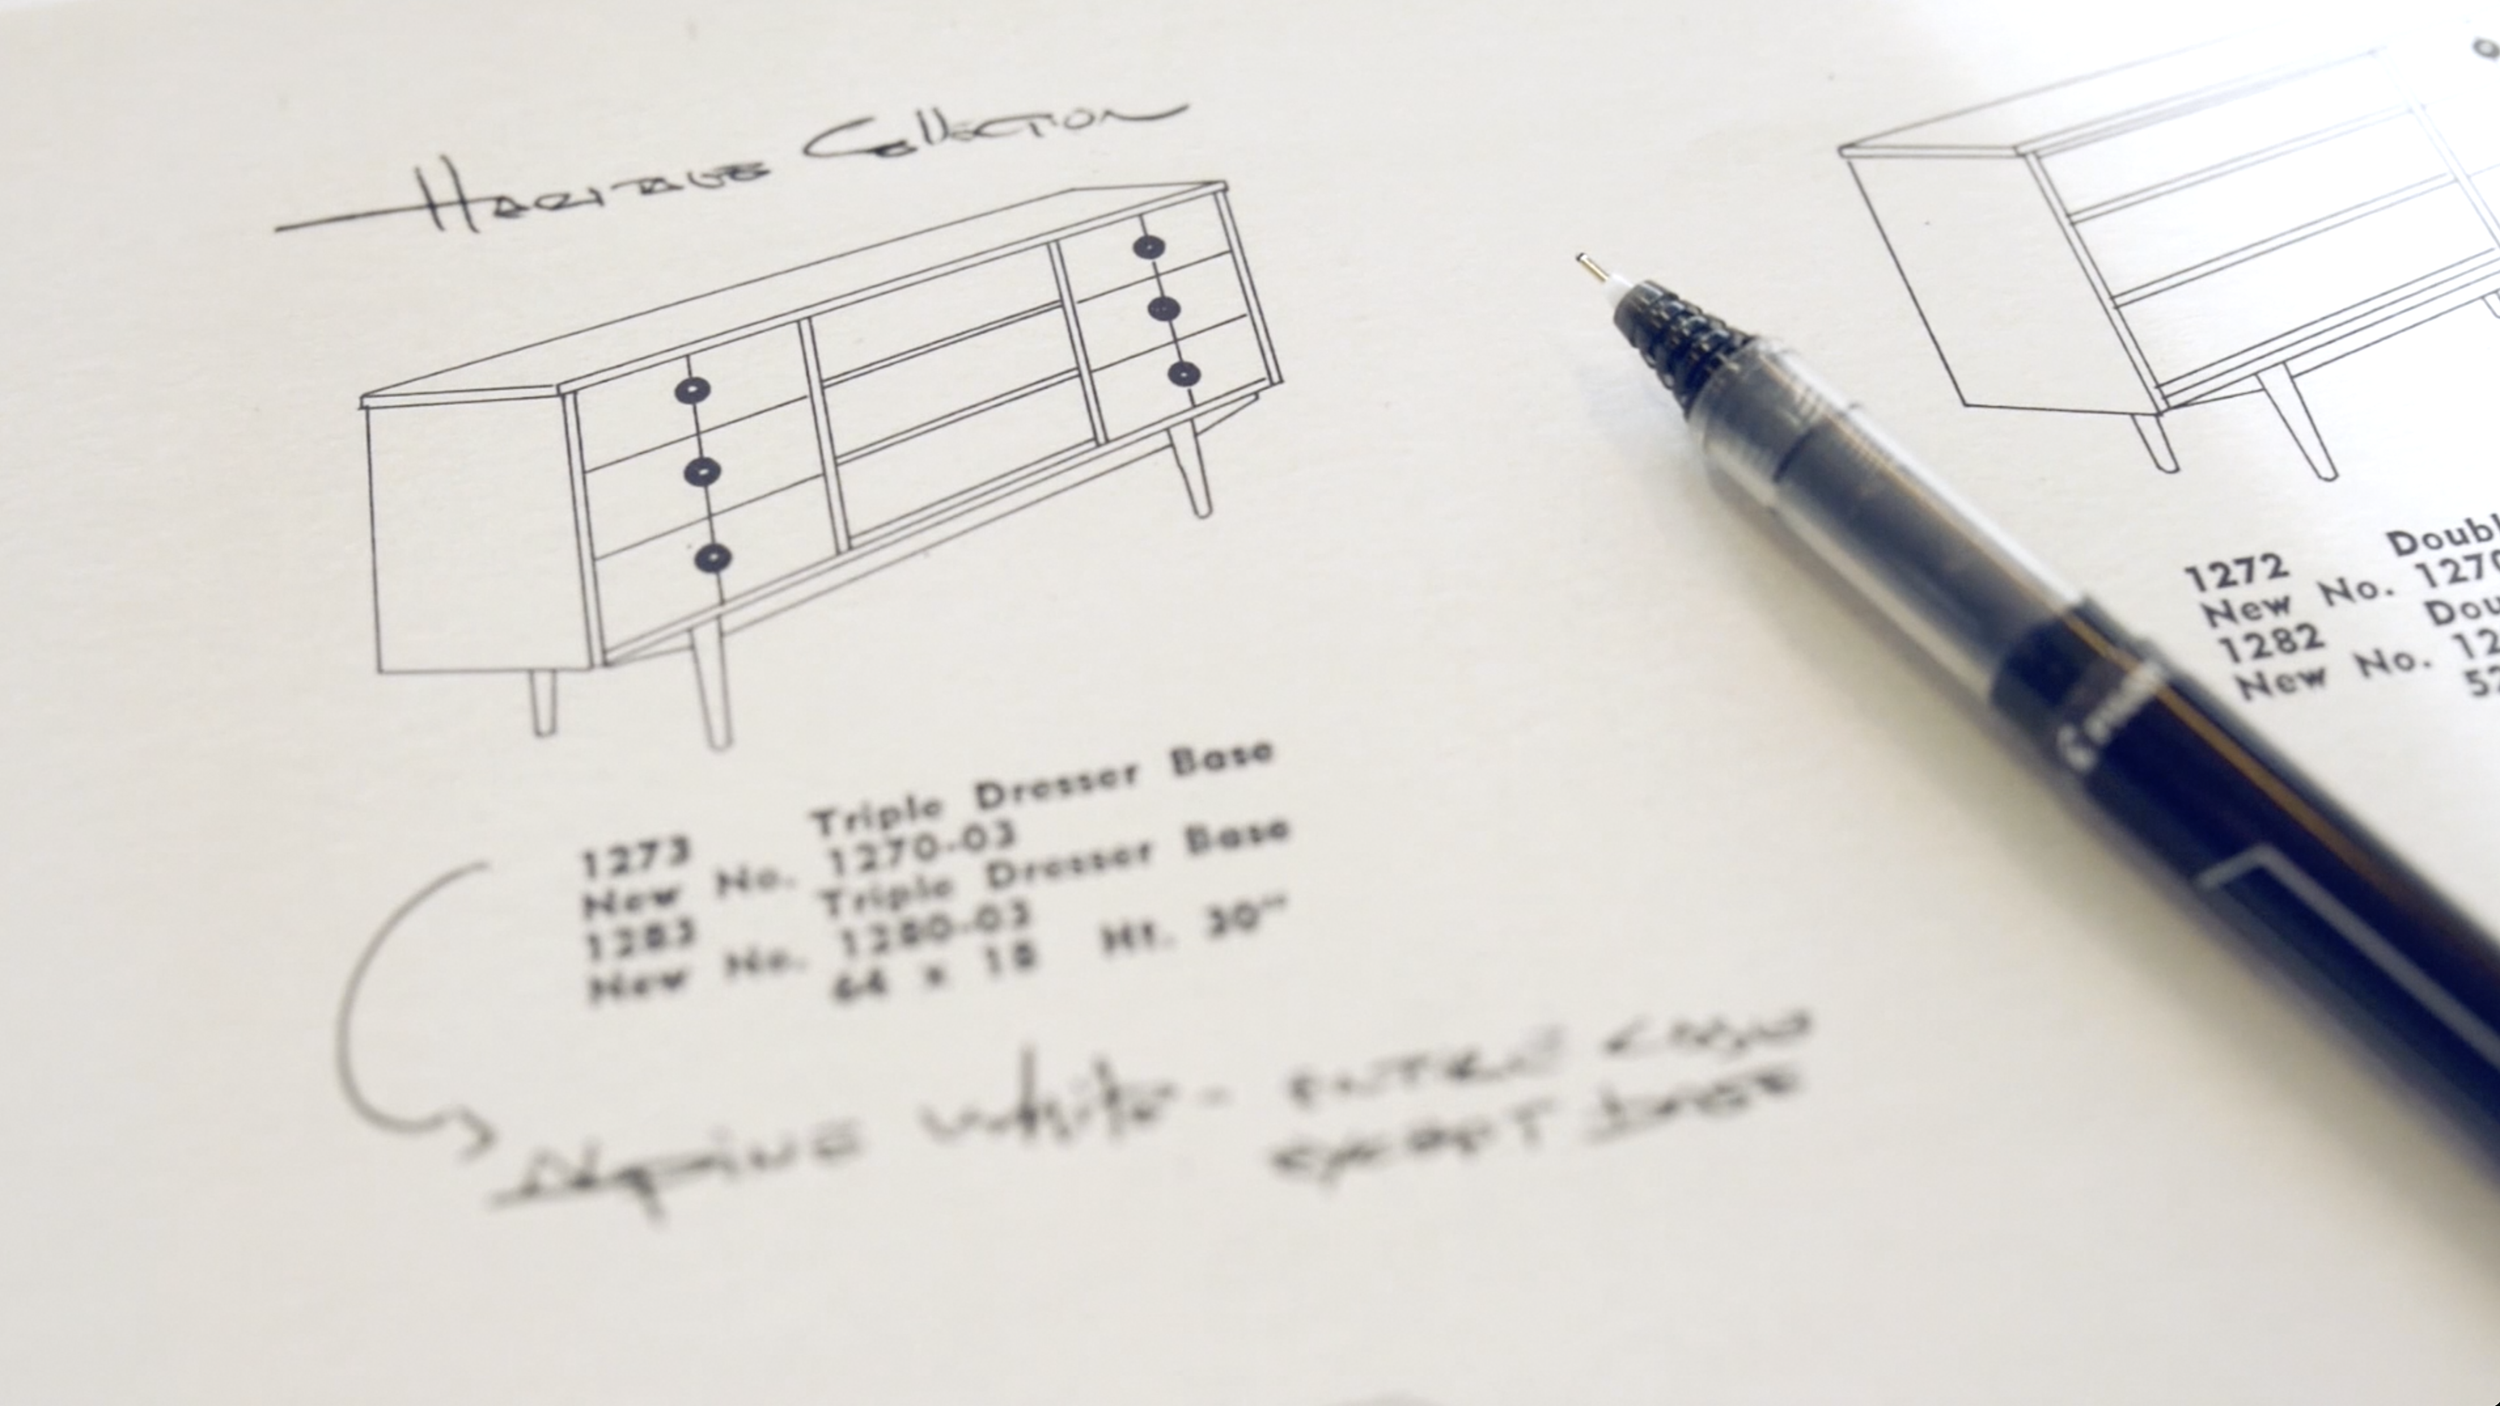 Heritage Collection
1273 Triple Dresser Base
New No. 1270-03
1283 Triple Dresser Base
New No. 1280-03
64 x 18 Ht. 30"
Alpine White - entire case
except base
1272 Doubl
New No. 1270
1282 Dou
New No. 12
52